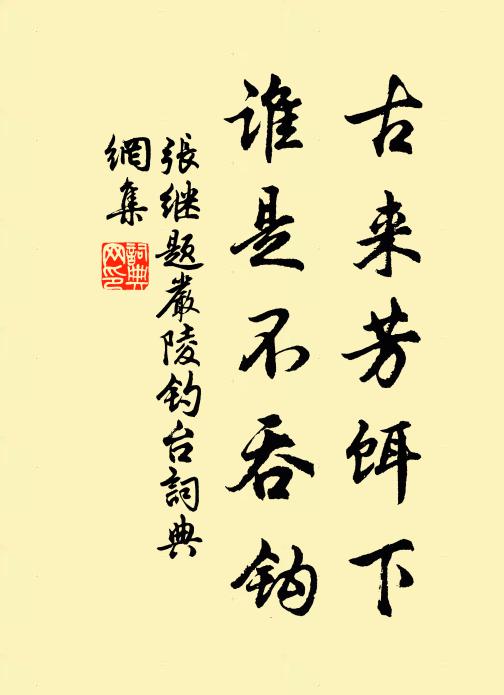 古来芳饵下
谁是不吞钩
張继题嚴陵钓台詞典
網集
詞典
网印